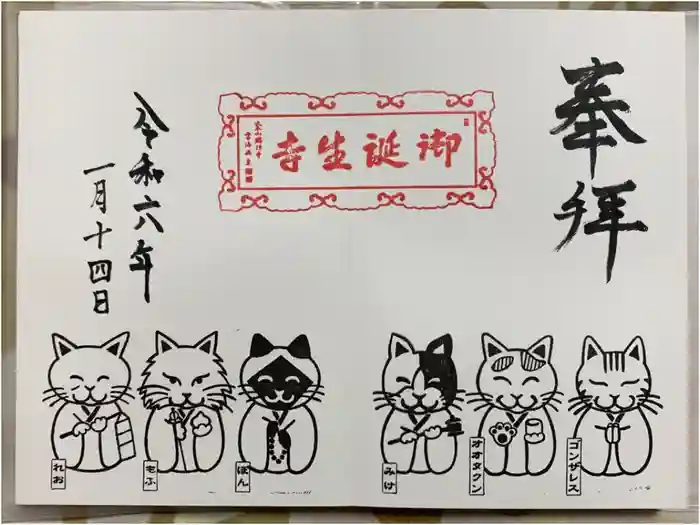 奉拝
御誕生寺
令和六年
一月十四日
れお
もふ
ぽん
みけ
オオタクン
ゴンザレス